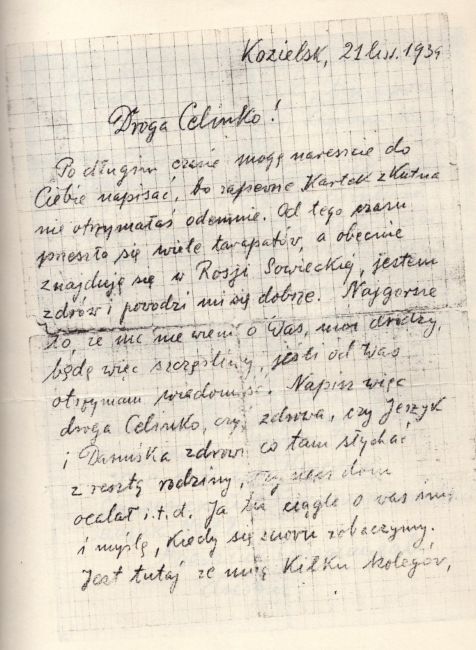 Kozielsk, 21 lis. 1939
Droga Celinko!
Po długim czasie mogę nareszcie do
Ciebie napisać, bo zapewne Kartek z Kutna
nie otrzymałaś odemnie. Od tego czasu
przeszło się wiele tarapatów, a obecnie
znajduję się w Rosji Sowieckiej, jestem
zdrów i powodzi mi się dobrze. Najgorsze
to że nic nie wiem o Was, moi drodzy,
będę więc szczęśliwy, jeśli od Was
otrzymam wiadomość. Napisz więc
droga Celinko, czyś zdrowa, czy Jerzyk
i Danuśka zdrowi co tam słychać
z resztą rodziny, czy nasz dom
ocalał i.t.d. Ja tu ciągle o was
i myślę, Kiedy się znowu zobaczymy.
Jest tutaj ze mną Kilku kolegów,